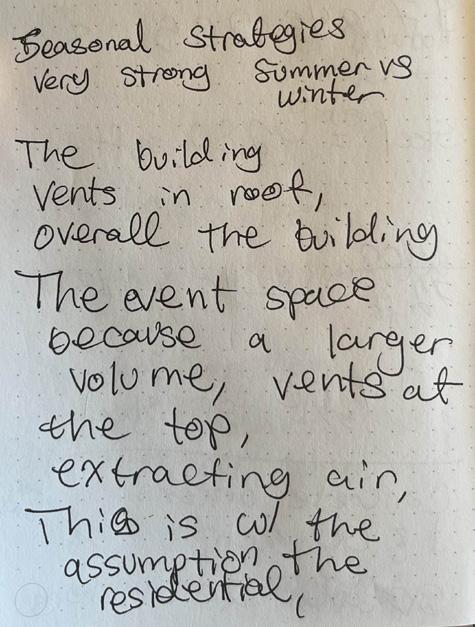 Seasonal Strategies
very strong Summer vs
winter
The building
vents in roof,
overall the building
The event space
because a larger
volume, vents at
the top,
extracting air,
This is w/ the
assumption the
residential,